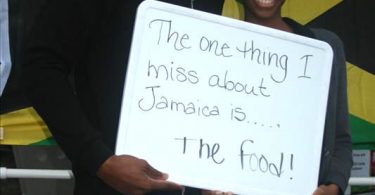 The one thing I
miss about
Jamaica is.....
The food!